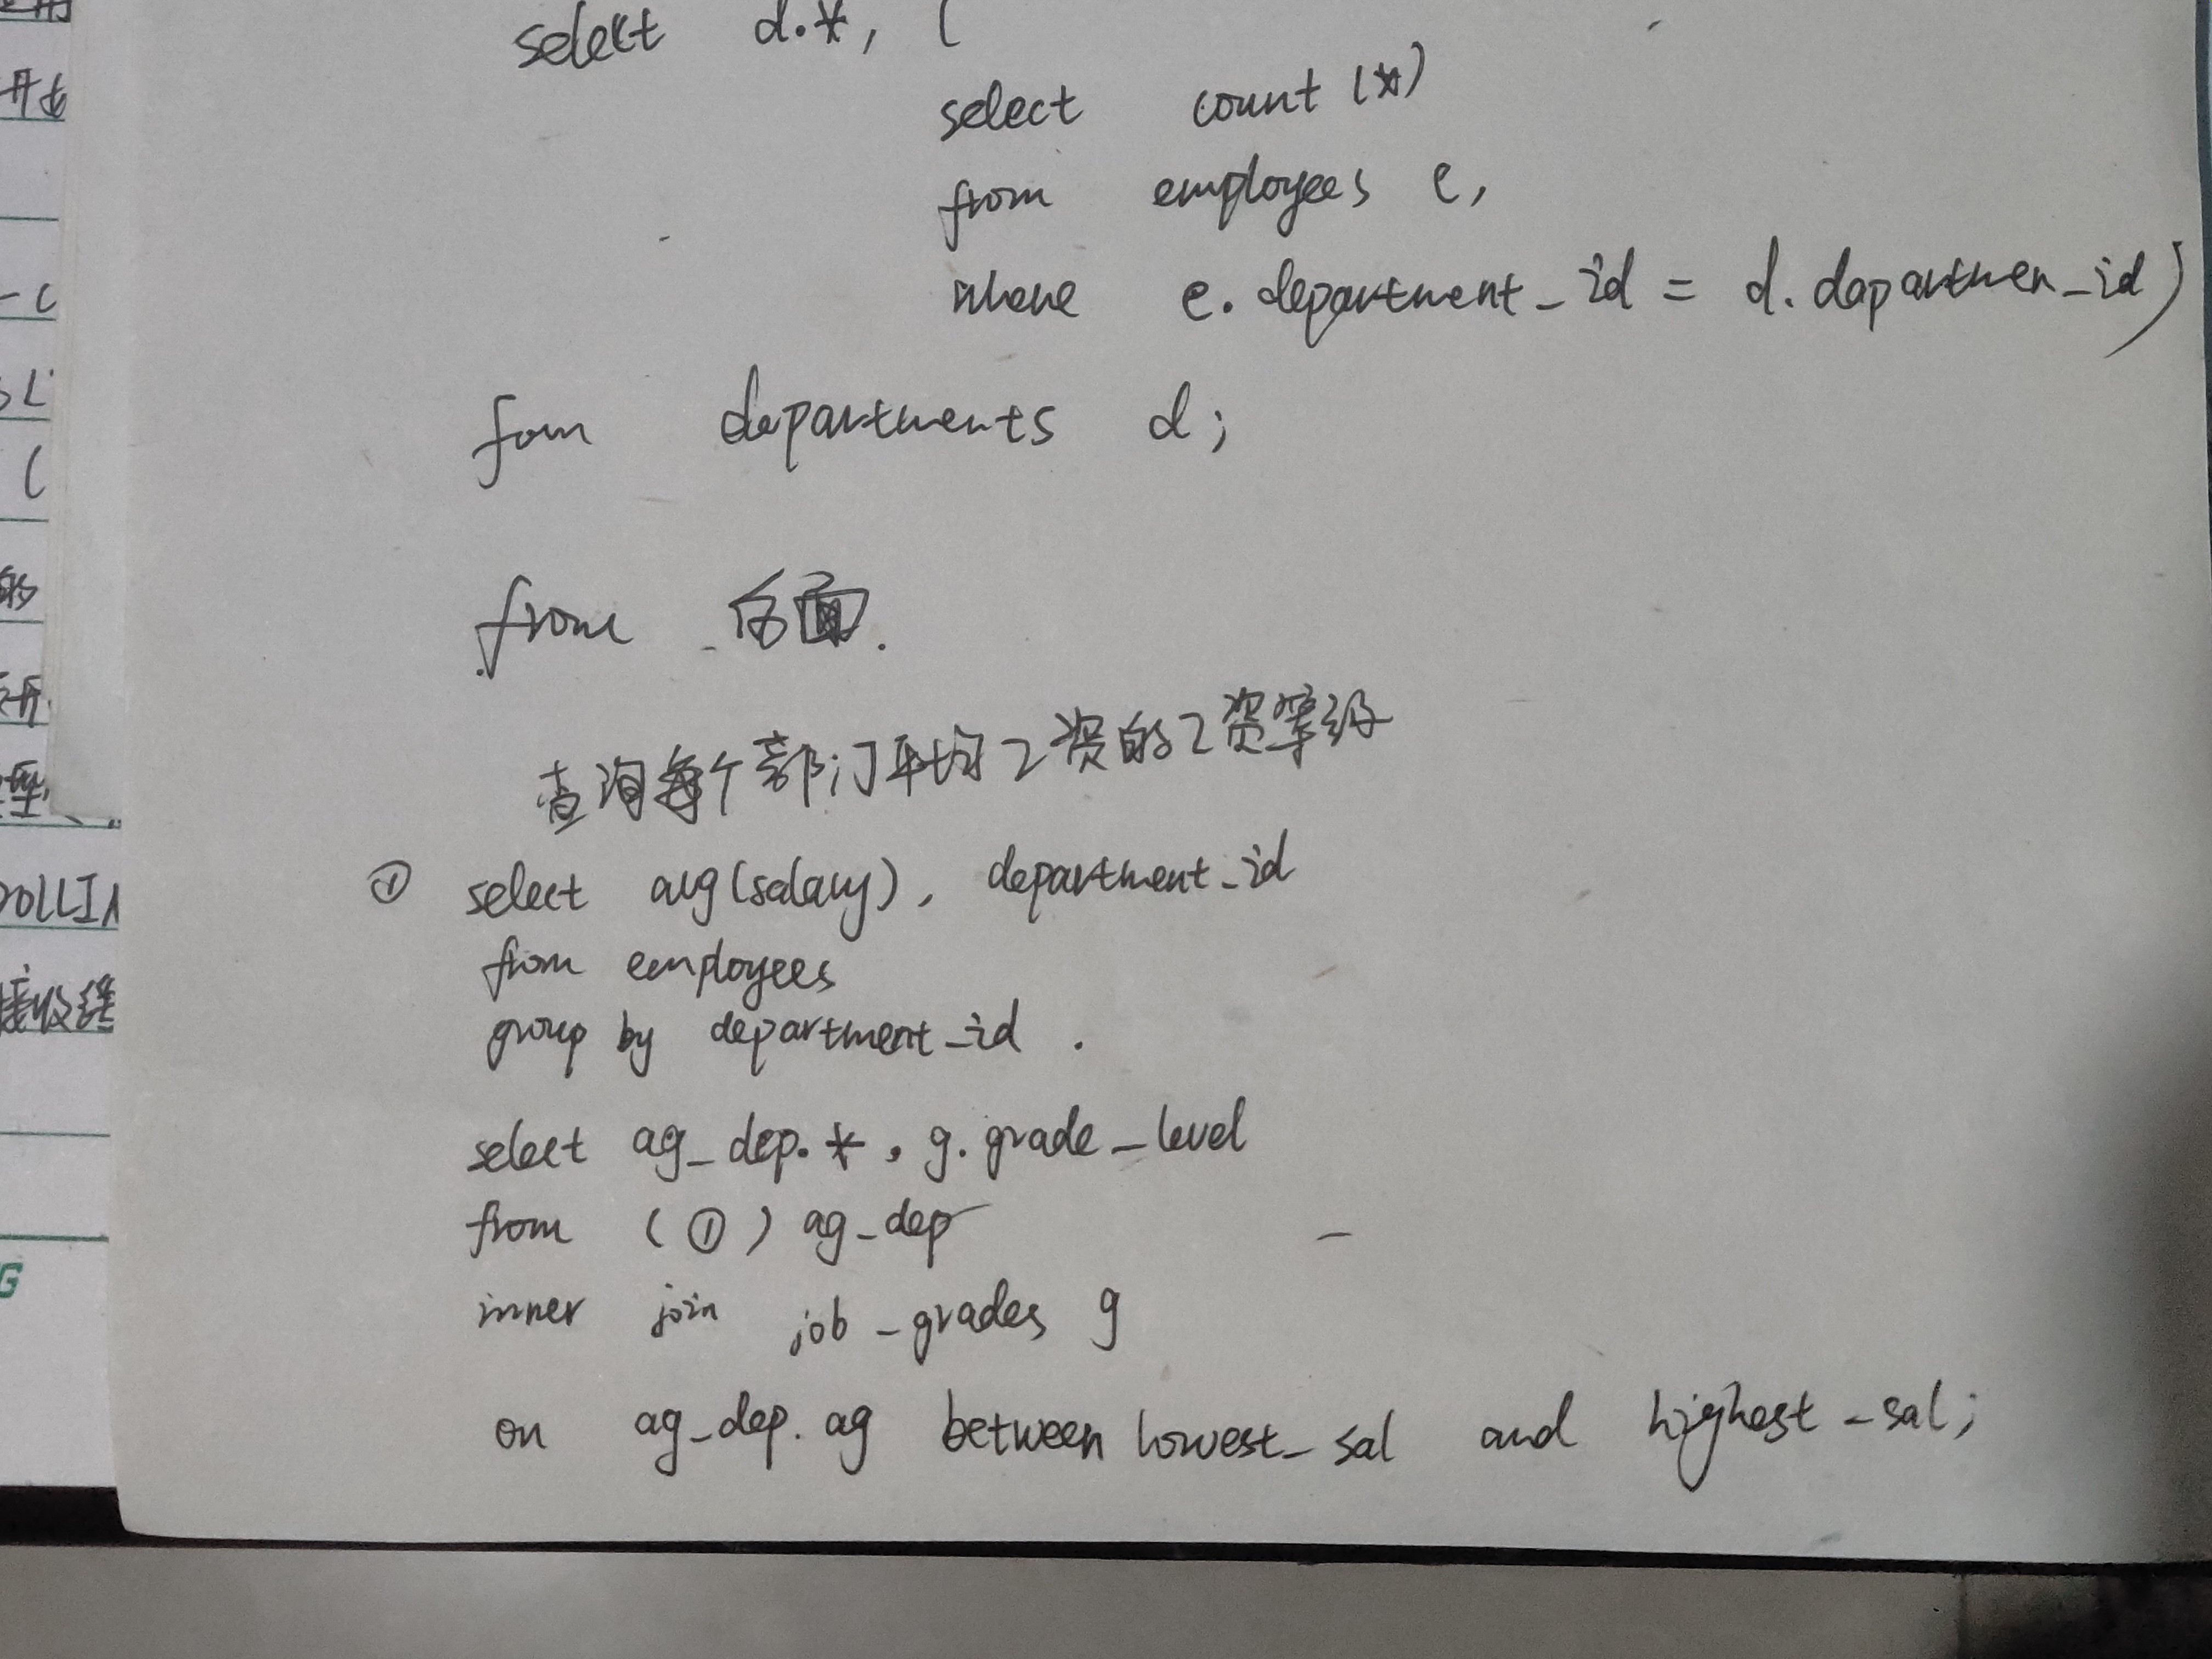 select d.*, (
select count (*)
from employees e,
where e.department_id = d.dapartmen_id)
fom departments d;
from 后面.
查询每个部门平均工资的工资等级
① select avg(salary), department_id
from employees
group by department_id .
select ag_dep.*, g.grade_level
from (①) ag_dep
inner join job_grades g
on ag_dep.ag between lowest_sal and highest_sal;
开
-c
SL
(
的
型
OLLI
接收维
G